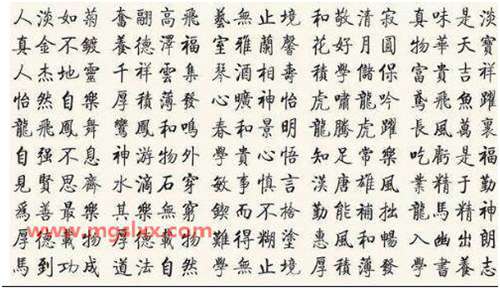 人淡如菊 奮翮高飛 藝無止境 和敬清寂 真味是淡
真金不鍍 養德澤福 室雅蘭馨 花好月圓 物華天寶
人杰地靈 千祥雲集 琴酒相壽 積學儲保 富貴吉祥
怡然自樂 厚積薄發 心曠神怡 虎嘯龍吟 鳶飛魚躍
龍飛鳳舞 鸞鳳和鳴 春和景明 龍騰虎躍 長風萬裏
自强不息 神游物外 學貴心悟 知足常樂 吃虧是福
見賢思齊 水滴石穿 敏事慎言 漢唐雄風 業精于勤
爲善最樂 其樂無窮 鍥而不捨 勤能補拙 龍馬精神
厚德載物 難得糊塗 惠風和暢
馬到功成 道法自然 學無止境 厚積薄發 學書養志
www.mgslux.com